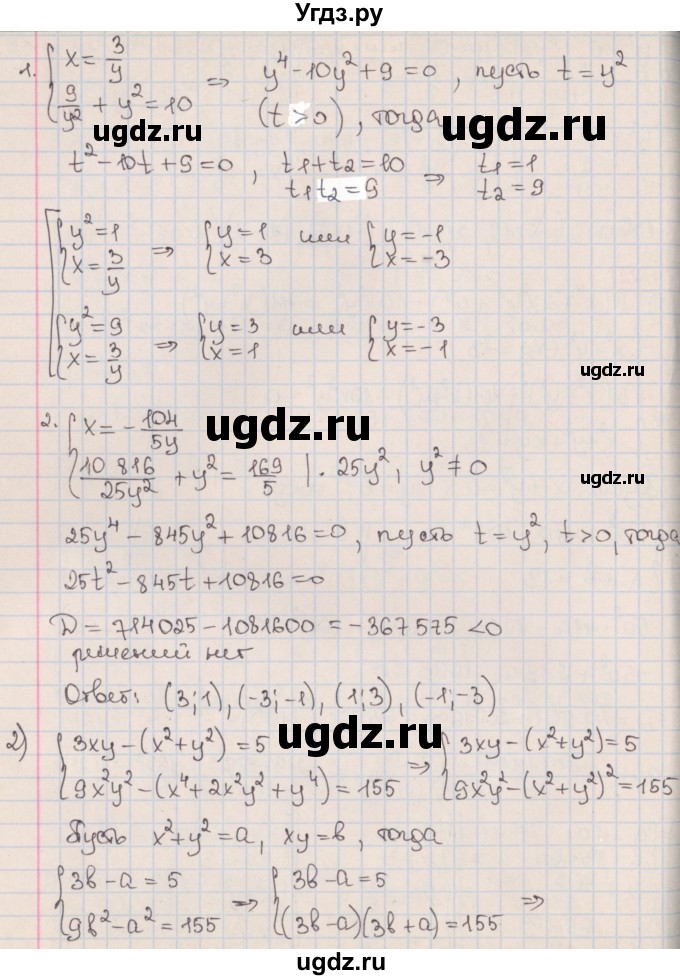 Угдз.ру
1. { x = 3/y ; 9/y² + y² = 10 ⇒ y⁴ - 10y² + 9 = 0, пусть t = y²
(t > 0), тогда
ugdz.ru
ugdz.ru
t² - 10t + 9 = 0, t₁ + t₂ = 10 ; t₁t₂ = 9 ⇒ t₁ = 1 ; t₂ = 9
[ { y² = 1 ; x = 3/y ⇒ { y = 1 ; x = 3 или { y = -1 ; x = -3
{ y² = 9 ; x = 3/y ⇒ { y = 3 ; x = 1 или { y = -3 ; x = -1
ugdz.ru
2. { x = - 104/5y ; 10 816/25y² + y² = 169/5 | · 25y², y² ≠ 0
ugdz.ru
ugdz.ru
25y⁴ - 845y² + 10816 = 0, пусть t = y², t > 0, тогда
25t² - 845t + 10816 = 0
D = 714025 - 1081600 = -367575 < 0
решений нет
ugdz.ru
Ответ: (3;1), (-3;-1), (1;3), (-1;-3)
2) { 3xy - (x² + y²) = 5 ; 9x²y² - (x⁴ + 2x²y² + y⁴) = 155 ⇒ { 3xy - (x² + y²) = 5 ; 9x²y² - (x² + y²)² = 155
ugdz.ru
Пусть x² + y² = a, xy = b, тогда
ugdz.ru
{ 3b - a = 5 ; 9b² - a² = 155 ⇒ { 3b - a = 5 ; (3b - a)(3b + a) = 155 ⇒
ugdz.ru
ugdz.ru
ugdz.ru